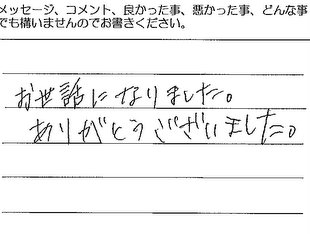 メッセージ、コメント、良かった事、悪かった事、どんな事
でも構いませんのでお書きください。
お世話になりました。
ありがとうございました。